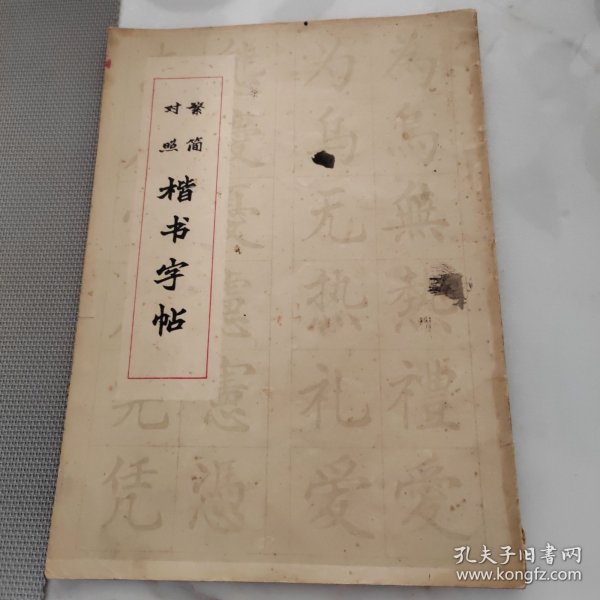 繁简
对照
楷书字帖
為烏無熱禮愛
为乌无热礼爱
憂憲憑
凭
孔夫子旧书网
www.kongfz.com